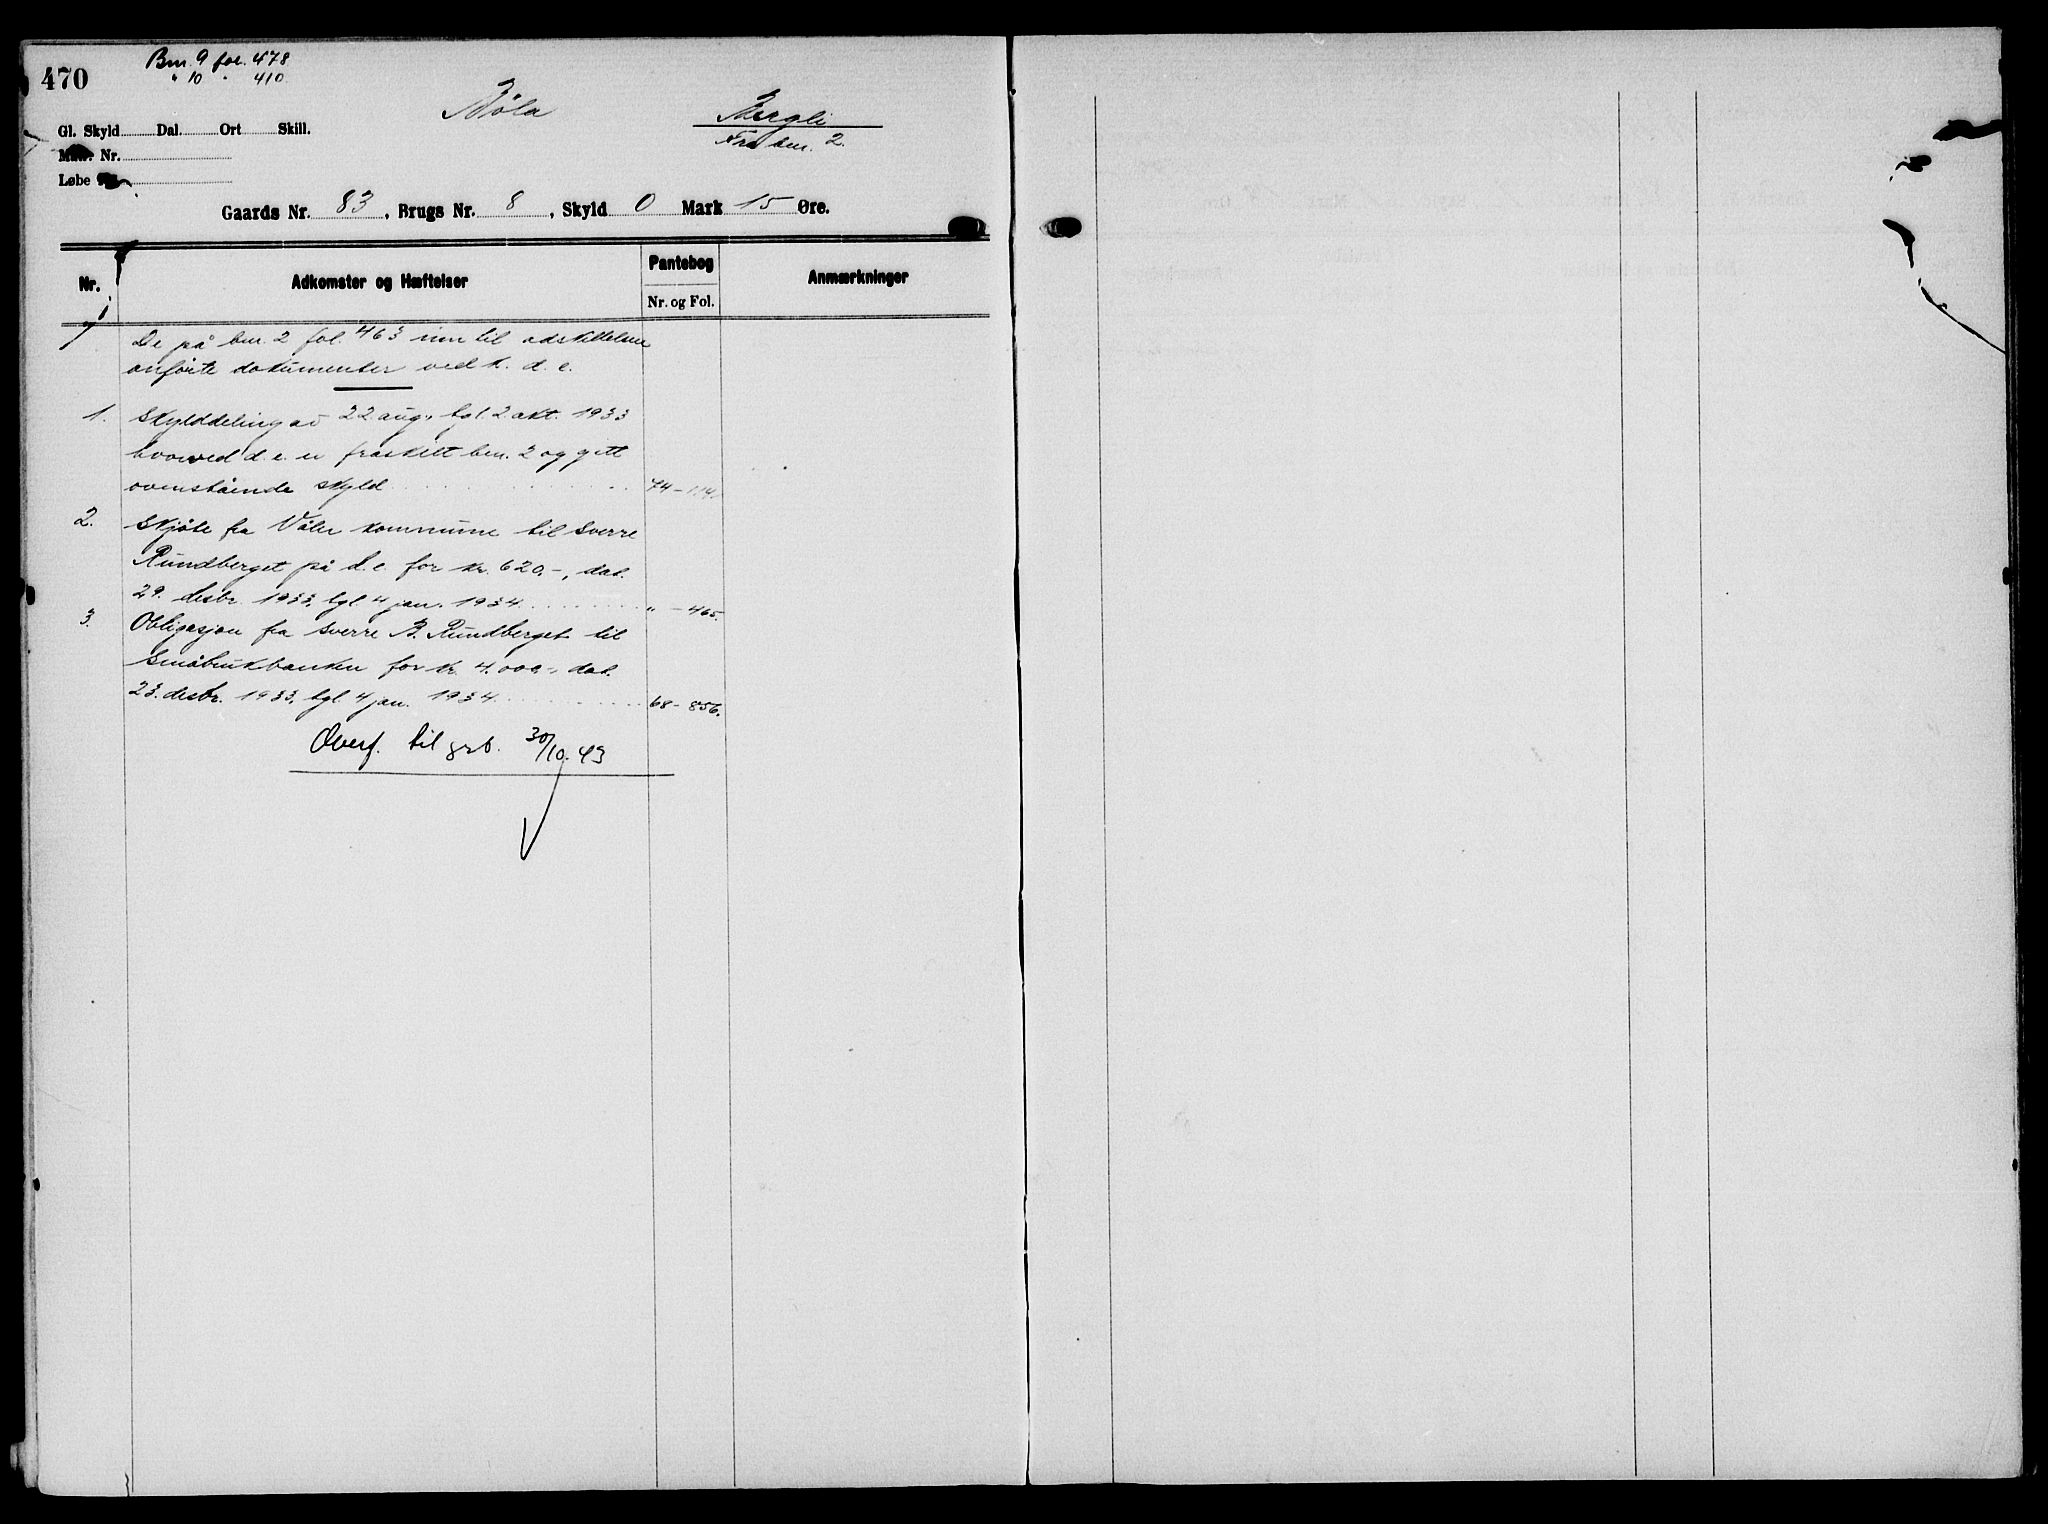 470
Bnr. 9 fol. 478
" 10 " 410
Bøla
Bergli
Fra bnr. 2.
Gl. Skyld Dal. Ort Skill.
Matr. Nr.
Løbe
Gaards Nr. 83, Brugs Nr. 8, Skyld 0 Mark 15 Øre.
Nr. Adkomster og Hæftelser Pantebog Anmærkninger
Nr. og Fol.
De på bnr. 2 fol. 463 inn til adskillelsen
anførte dokumenter vedk. d. e.
1. Skylddeling av 22 aug., tgl. 2 okt. 1933
hvorved d. e. er fraskilt bnr. 2 og gitt
ovenstående skyld 74 - 114.
2. Skjøte fra Våler kommune til Sverre
Rundberget på d. e. for kr. 620.-, dat.
29. desbr. 1933, tgl. 4 jan. 1934 " - 465.
3. Obligasjon fra Sverre B. Rundberget til
Småbrukbanken for kr. 4.000.-, dat.
23. desbr. 1933, tgl. 4 jan. 1934 68 - 856.
Overf. til grb. 30/10.43